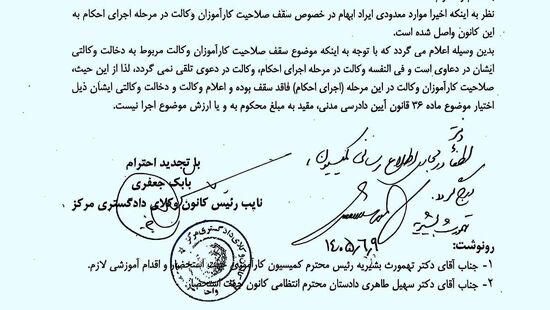 نظر به اینکه اخیرا موارد معدودی ایراد ابهام در خصوص سقف صلاحیت کارآموزان وکالت در مرحله اجرای احکام به
این کانون واصل شده است.
بدین وسیله اعلام می گردد که با توجه به اینکه موضوع سقف صلاحیت کارآموزان وکالت مربوط به دخالت وکالتی
ایشان در دعاوی است و فی النفسه وکالت در مرحله اجرای احکام، وکالت در دعوی تلقی نمی گردد، لذا از این حیث،
صلاحیت کارآموزان وکالت در این مرحله (اجرای احکام) فاقد سقف بوده و اعلام وکالت و دخالت وکالتی ایشان ذیل
اختیار موضوع ماده ۳۶ قانون آیین دادرسی مدنی، مقید به مبلغ محکوم به و یا ارزش موضوع اجرا نیست.
دفتر
لطفا در مجاری اطلاع رسانی کمیسیون،
درج گردد.
تهمورث بشیریه
۱۴۰۵/۲/۹
با تجدید احترام
بابک جعفری
نایب رئیس کانون وکلای دادگستری مرکز
کانون وکلای دادگستری مرکز
رونوشت:
۱- جناب آقای دکتر تهمورث بشیریه رئیس محترم کمیسیون کارآموزی جهت استحضار و اقدام آموزشی لازم.
۲- جناب آقای دکتر سهیل طاهری دادستان محترم انتظامی کانون جهت استحضار.